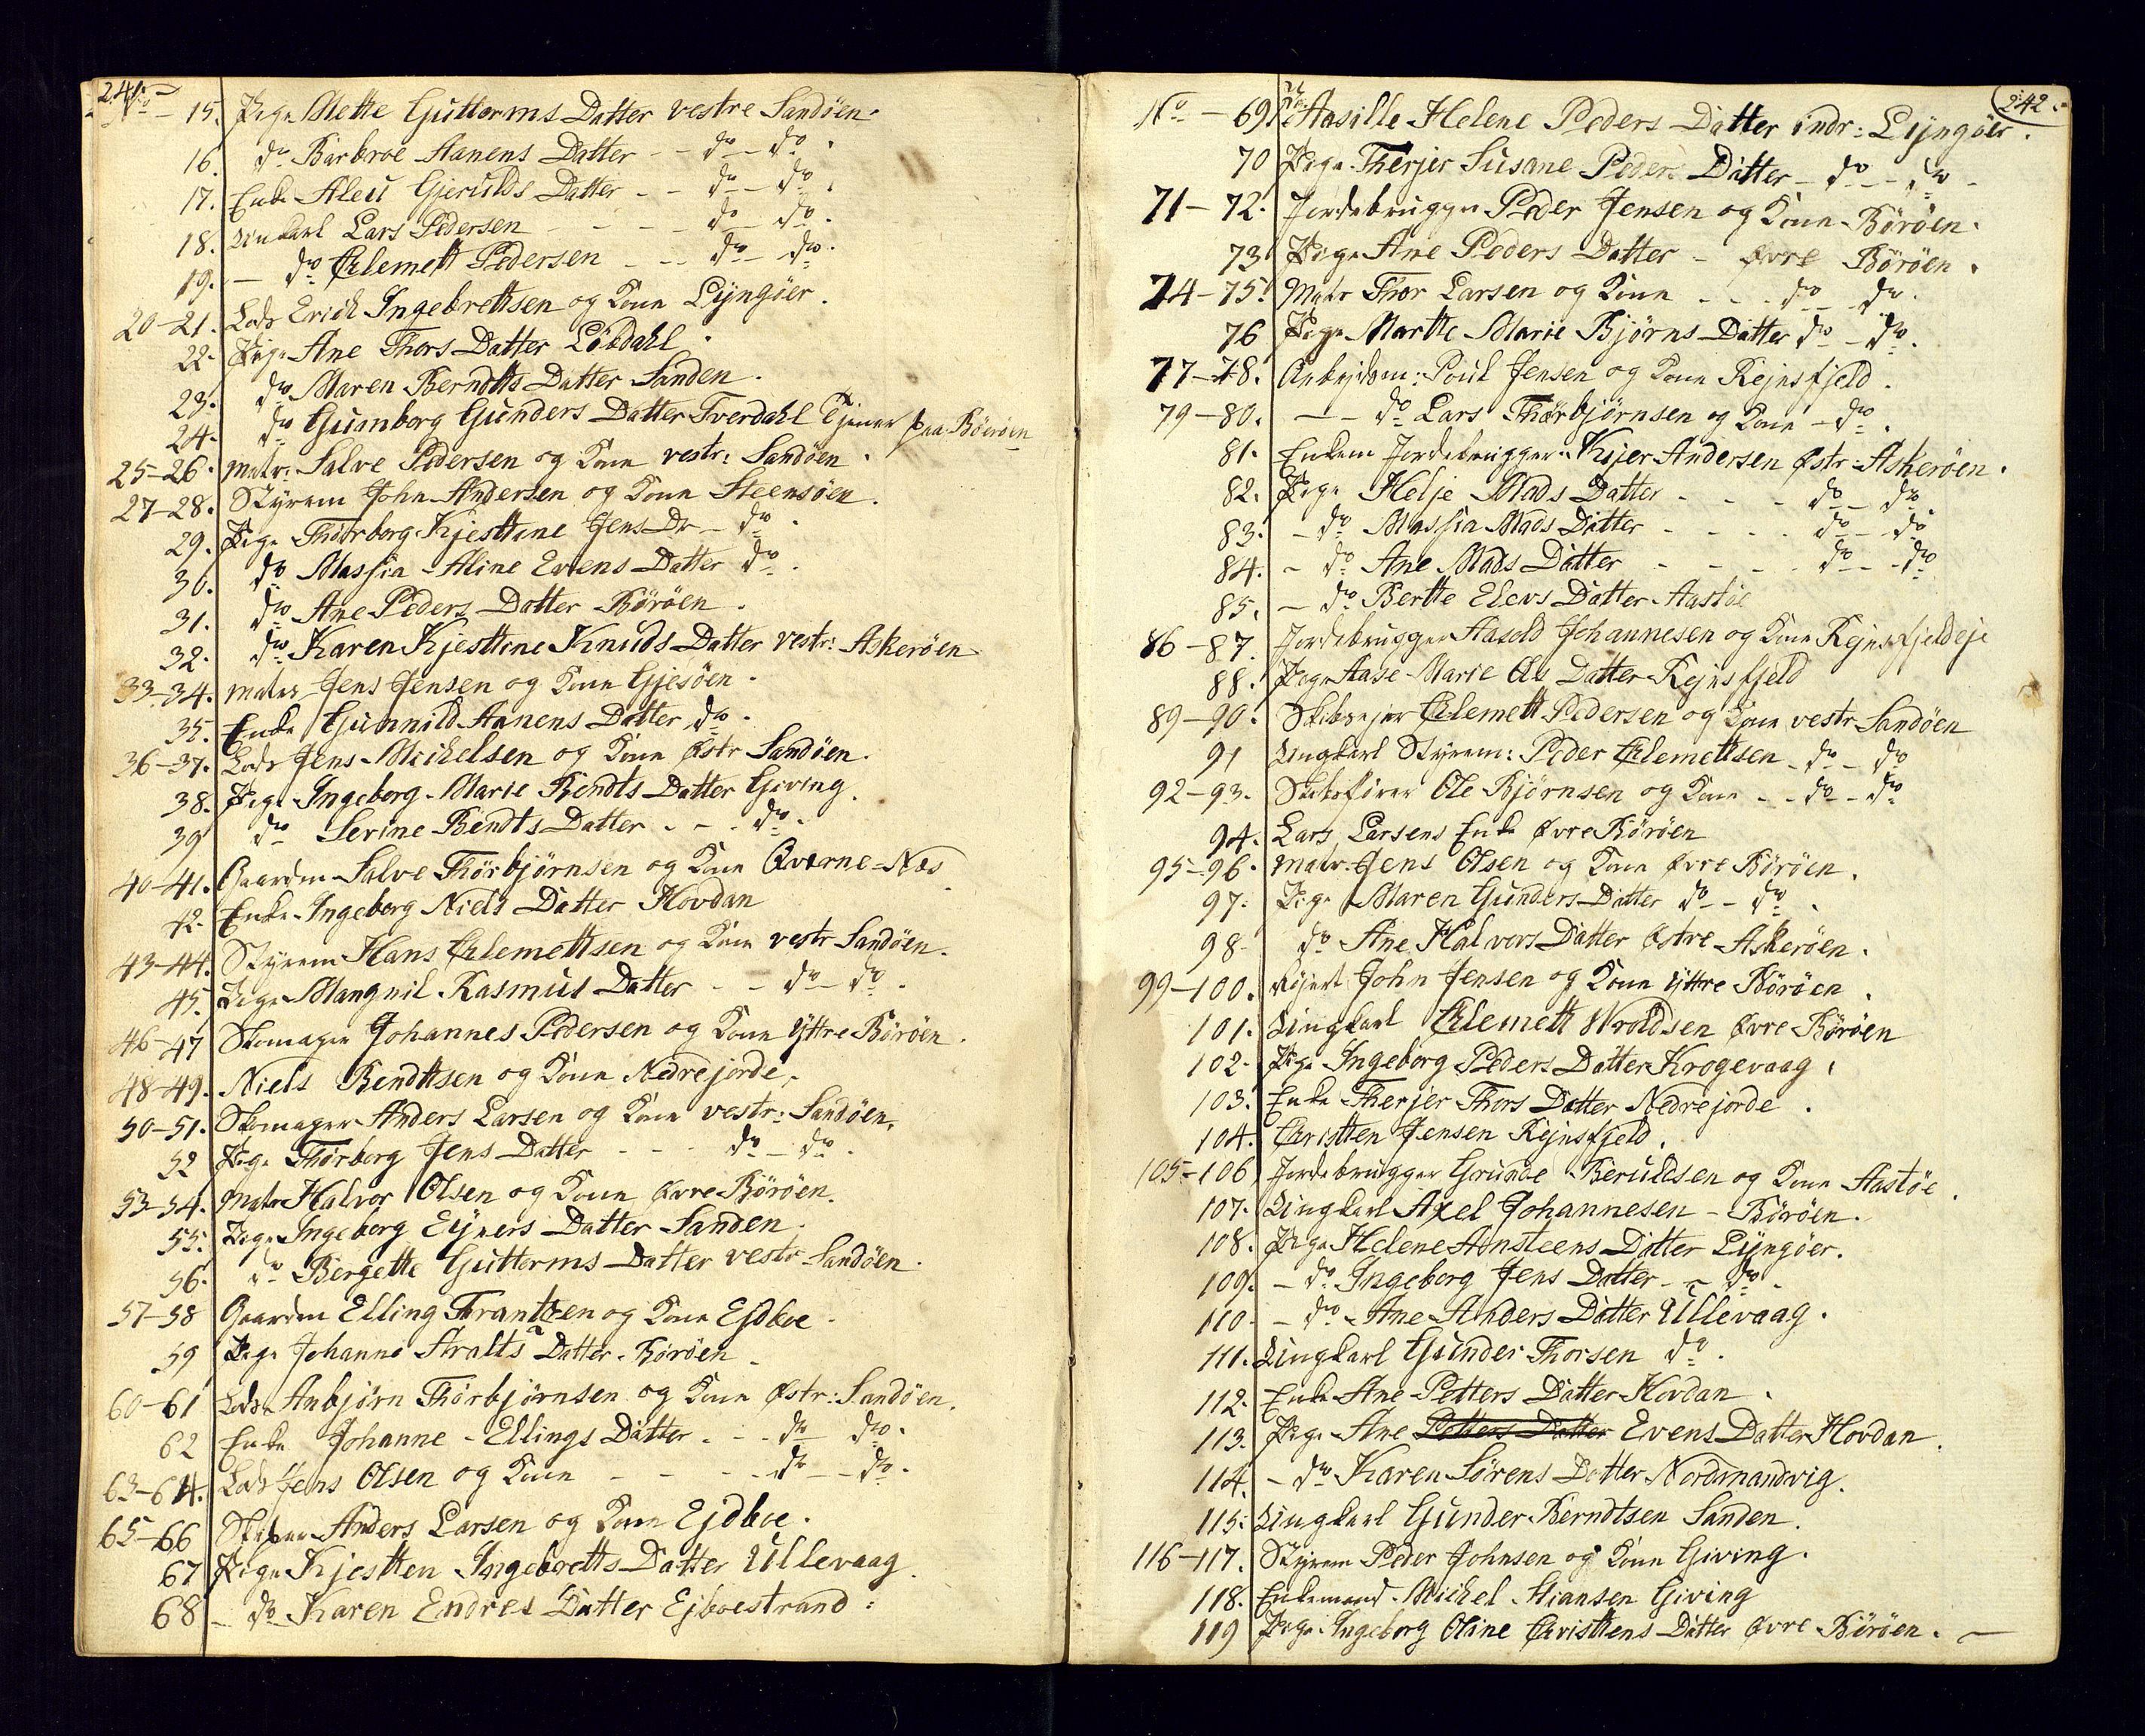 241.
No – 15. Pige Mette Guttorms Datter vestre Sandöen.
16. do Barbroe Aanens Datter – – do – do.
17. Enke Aleu Gjerulds Datter – – do – do.
18. Ungkarl Lars Pedersen – – – – do – do.
19. – do Clemett Pedersen – – – do – do.
20–21. Lods Erich Ingebrettsen og Kone Lÿngöer.
22. Pige Ane Thors Datter Löbdahl.
23. do Maren Berndtts Datter Sanden.
24. do Gumborg Gunders Datter Tverdahl Tjener paa Böröen
25–26. Matr: Salve Pedersen og Kone vestr: Sandöen.
27–28. Styrem John Andersen og Kone Steensöen.
29. Pige Thorborg Kjesttine Jens Dr – do.
30. do Massia Aline Evens Datter do.
31. do Ane Peders Datter Böröen.
32. do Karen Kjesttine Knuds Datter vestr: Askeröen
33–34. Matros Jens Jensen og Kone Gjesöen.
35. Enke Gunnild Aanens Datter do.
36–37. Lods Jens Michelsen og Kone Östr Sandöen.
38. Pige Ingeborg Marie Bendts Datter Giving.
39 do Serine Bendts Datter – – do.
40–41. Gaardm Salve Thorbjørnsen og Kone Qverne-Næs
42. Enke Ingeborg Niels Datter Hovdan
43–44. Styrem Hans Clemettsen og Kone vestr Sandöen.
45. Pige Mangnil Rasmus Datter – – do – do.
46–47 Skomager Johannes Pedersen og Kone Yttre Böröen.
48–49. Niels Bendttsen og Kone Nedrejorde.
50–51. Skomager Anders Larsen og Kone vestr: Sandöen.
52 Pige Thorborg Jens Datter – – – do – do.
53–54. Matr Halvor Olsen og Kone Övre Böröen.
55. Pige Ingeborg Eÿners Datter Sanden.
56. do Bergette Gutterms Datter vestr Sandöen.
57–58 Gaardm Elling Frantzen og Kone Ejdboe.
59 Pige Johanne Aralts Datter Böröen
60–61 Lods Anbjørn Thorbjørnsen og Kone Östr: Sandöen.
62 Enke Johanne Ellings Datter – – do do.
63–64. Lods Jens Olsen og Kone – – – – do – do.
65–66 Skiper Anders Larsen og Kone Ejdboe.
67 Pige Kjestten Ingebretts Datter Ullevaag.
68 – do Karen Endres Datter Ejboestrand.
242.
No – 69. Pige Aasille Helene Peders Datter indr: Lÿngöer.
70 Pige Therjer Susane Peders Datter – do – do
71–72. Jordebrugger Peder Jensen og Kone Böröen.
73 Pige Ane Peders Datter – Övre Böröen.
74–75. Matr Thor Larsen og Kone – – – do – do.
76 Pige Marthe Marie Bjørns Datter do – do.
77–78. Arbejdsm: Poul Jensen og Kone Rejnsfjeld.
79–80. – – do Lars Thorbjørnsen og Kone – do.
81. Enkem Jordebrugger Kÿer Andersen Östr: Askeröen.
82. Pige Helje Mads Datter – – – do – do
83. – do Massia Mads Datter – – – – do – do
84. – do Ane Mads Datter – – – – do – do
85. – do Bertte Elevs Datter Aastöe
86–87. Jordebrugger Aasold Johannesen og Kone Rejnsfjeldeje
88. Pige Aase Marie Ols Datter Rejnsfjeld
89–90. Skibsejer Clemett Pedersen og Kone vestr Sandöen
91 Ungkarl Styrem: Peder Clemettsen – do – do
92–93. Skibsförer Ole Bjørnsen og Kone – – do – do
94. Lars Larsens Enke Övre Böröen
95–96. Matr. Jens Olsen og Kone Övre Böröen.
97. Pige Maren Gunders Datter do – do.
98 do Ane Halvors Datter Östre Askeröen.
99–100. John Jensen og Kone Yttre Böröen.
101. Ungkarl Clemett Wroldsen Övre Böröen
102. Pige Ingeborg Peders Datter Krogevaag.
103. Enke Therjer Thors Datter Nedrejorde.
104. Christten Jensen Rejnsfjeld.
105–106 Jordebrugger Grunde Beruldsen og Kone Aastöe.
107. Ungkarl Axel Johannesen – Böröen.
108. Pige Helene Aansteens Datter Lÿngöer.
109. – do Ingeborg Jens Datter – – do –
110 – do Ane Anders Datter Ullevaag.
111. Ungkarl Gunder Thorsen do.
112. Enke Ane Petters Datter Hovdan.
113. Pige Ane Petters Datter Evens Datter Hovdan.
114. – do Karen Sørens Datter Nordmandvig.
115. Ungkarl Gunder Berndtsen Sanden.
116–117. Styrem Peder Johnsen og Kone Giving.
118. Enkemand Michel Hansen Giving
119 Pige Ingeborg Oline Christtens Datter Övre Böröen. –